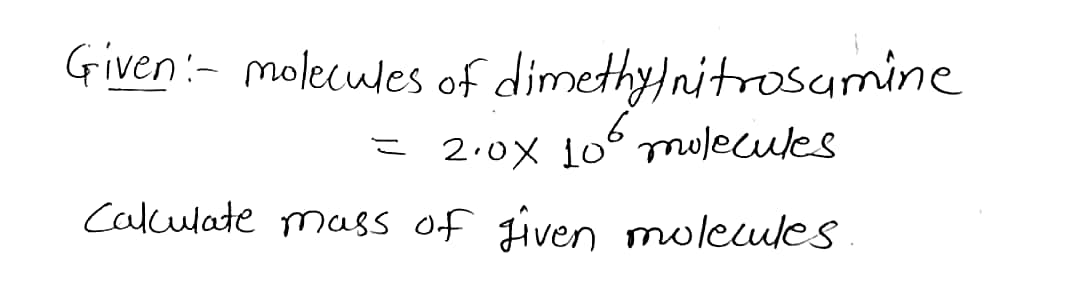 Given:- molecules of dimethylnitrosamine
= 2.0X 10⁶ molecules
Calculate mass of given molecules.